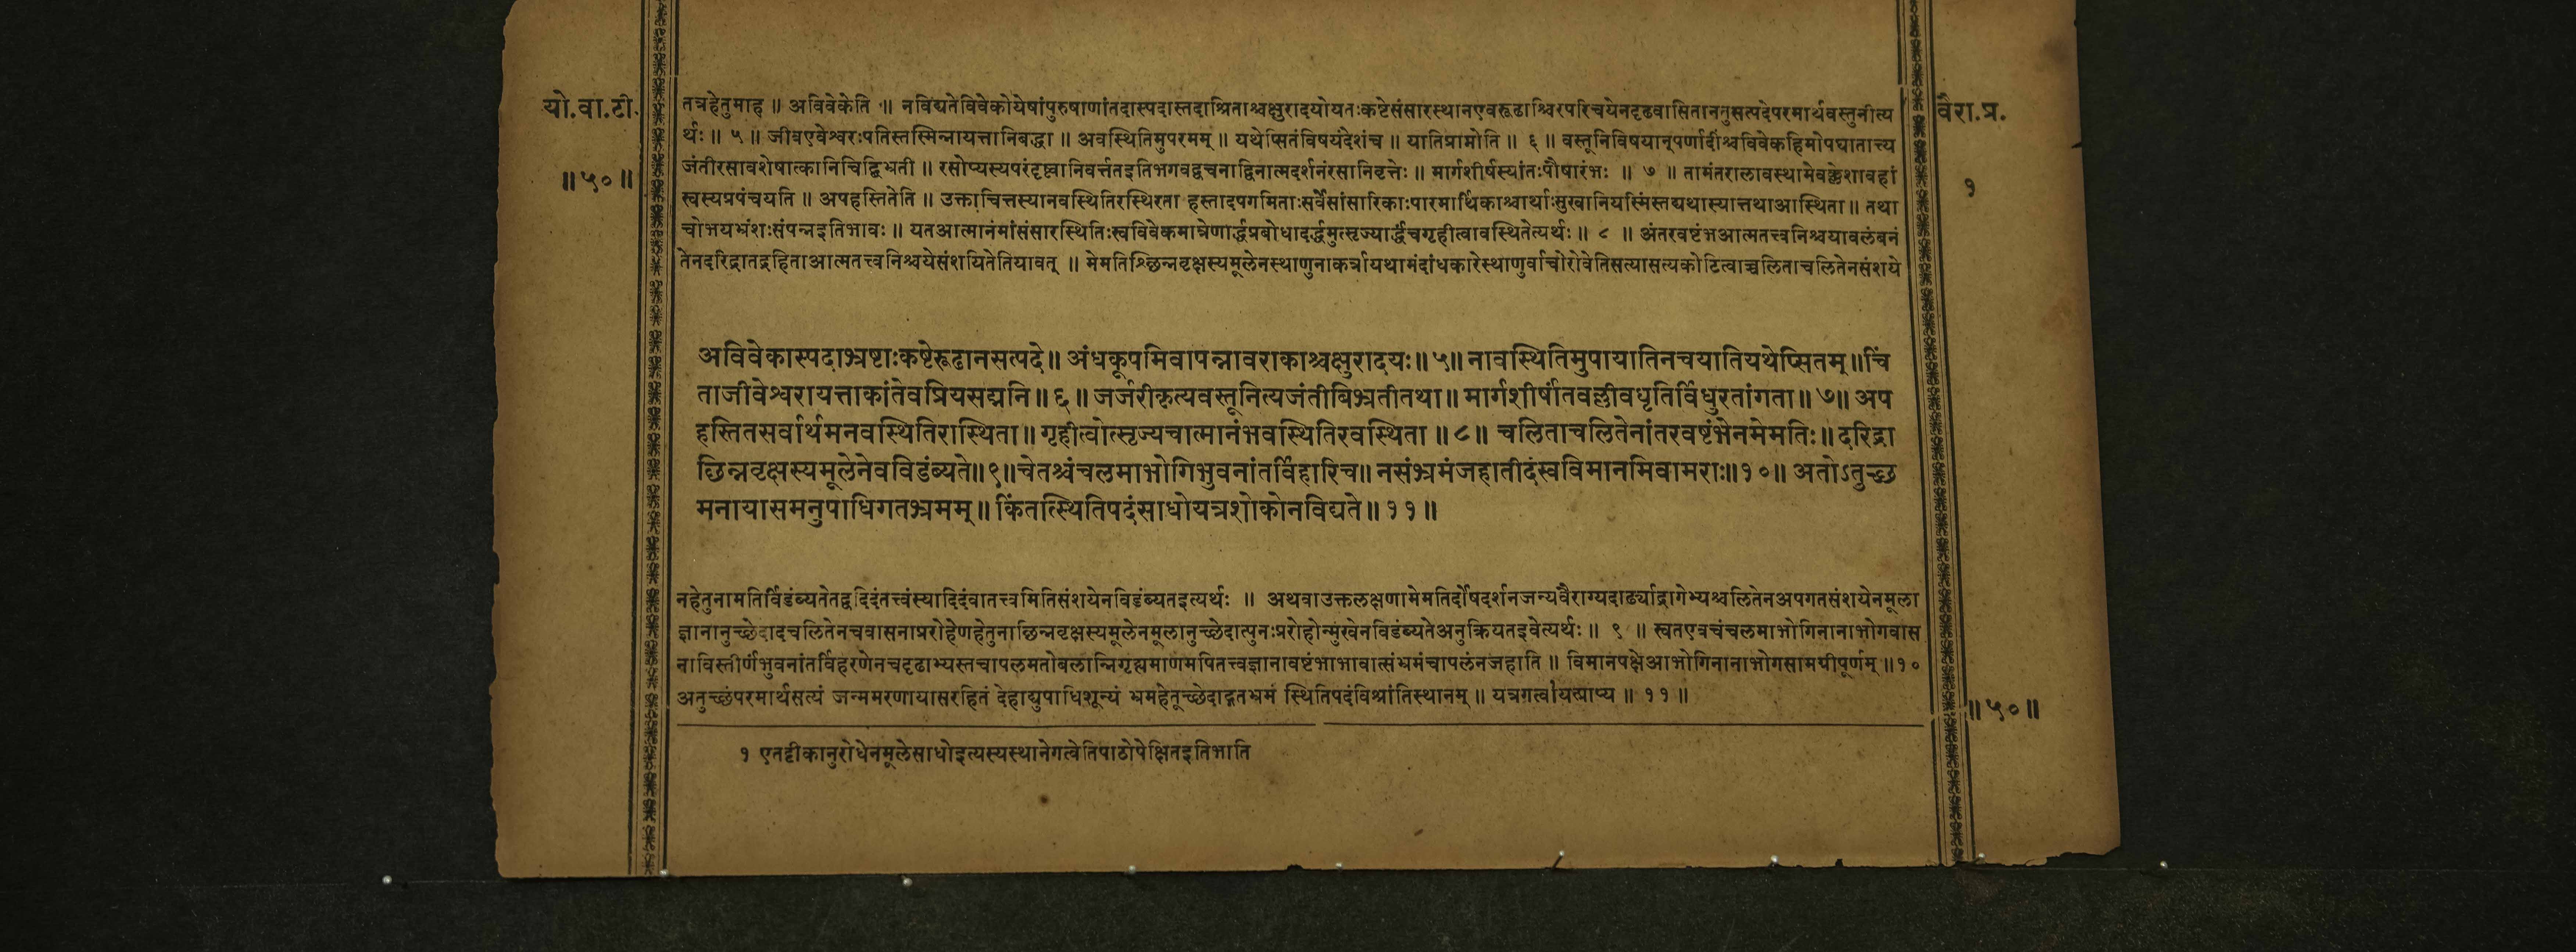 यो.वा.टी.
॥५०॥
तत्रहेतुमाह ॥ अविवेकेति ॥ नविद्यतेविवेकोयेषांपुरुषाणांतदास्पदास्तदाश्रिताश्चक्षुरादयोयतःकष्टेसंसारस्थानएवरूढाश्चिरपरिचयेनदृढवासिताननुसत्पदेपरमार्थवस्तुनीत्य
र्थः ॥ ५ ॥ जीवएवेश्वरःपतिस्तस्मिन्नायत्तानिबद्धा ॥ अवस्थितिमुपरमम् ॥ यथेप्सितंविषयंदेशंच ॥ यातिप्राप्नोति ॥ ६ ॥ वस्तूनिविषयान्पर्णादींश्चविवेकहिमोपघातात्त्य
जंतीरसावशेषात्कानिचिद्बिभ्रती ॥ रसोप्यस्यपरंदृष्ट्वानिवर्त्ततइतिभगवद्वचनाद्विनात्मदर्शनंरसानिवृत्तेः ॥ मार्गशीर्षस्यांतःपौषारंभः ॥ ७ ॥ तामंतरालावस्थामेवक्लेशावहां
स्वस्यप्रपंचयति ॥ अपहस्तितेति ॥ उक्ताचित्तस्यानवस्थितिरस्थिरता हस्तादपगमिताःसर्वेसांसारिकाःपारमार्थिकाश्चार्थाःसुखानियस्मिंस्तद्यथास्यात्तथाआस्थिता ॥ तथा
चोभयभ्रंशःसंपन्नइतिभावः ॥ यतआत्मानंमांसंसारस्थितिःस्वविवेकमात्रेणार्द्धप्रबोधादर्द्धमुत्सृज्यार्द्धंचगृहीत्वावस्थितेत्यर्थः ॥ ८ ॥ अंतरवष्टंभआत्मतत्त्वनिश्चयावलंबनं
तेनदरिद्रातद्रहिताआत्मतत्त्वनिश्चयेसंशयितेतियावत् ॥ मेमतिश्छिन्नवृक्षस्यमूलेनस्थाणुनाकर्त्रायथामंदांधकारेस्थाणुर्वाचोरोवेतिसत्यासत्यकोटित्वाच्चलिताचलितेनसंशये
वैरा.प्र.
१
अविवेकास्पदाभ्रष्टाःकष्टेरूढानसत्पदे॥ अंधकूपमिवापन्नावराकाश्चक्षुरादयः॥५॥ नावस्थितिमुपायातिनचयातियथेप्सितम्॥चिं
ताजीवेश्वरायत्ताकांतेवप्रियसद्मनि॥६॥ जर्जरीकृत्यवस्तूनित्यजंतीबिभ्रतीतथा॥ मार्गशीर्षांतवल्लीवधृतिर्विधुरतांगता॥७॥ अप
हस्तितसर्वार्थमनवस्थितिरास्थिता॥ गृहीत्वोत्सृज्यचात्मानंभवस्थितिरवस्थिता॥८॥ चलिताचलितेनांतरवष्टंभेनमेमतिः॥दरिद्रा
छिन्नवृक्षस्यमूलेनेवविडंब्यते॥९॥चेतश्चंचलमाभोगिभुवनांतर्विहारिच॥ नसंभ्रमंजहातीदंस्वविमानमिवामराः॥१०॥ अतोऽतुच्छ
मनायासमनुपाधिगतभ्रमम्॥ किंतत्स्थितिपदंसाधोयत्रशोकोनविद्यते॥११॥
नहेतुनामतिर्विडंब्यतेतद्वदिदंतत्त्वंस्यादिदंवातत्त्वमितिसंशयेनविडंब्यतइत्यर्थः ॥ अथवाउक्तलक्षणामेमतिर्दोषदर्शनजन्यवैराग्यदार्ढ्याद्रागेभ्यश्चलितेनअपगतसंशयेनमूला
ज्ञानानुच्छेदादचलितेनचवासनाप्ररोहेणहेतुनाछिन्नवृक्षस्यमूलेनमूलानुच्छेदात्पुनःप्ररोहोन्मुखेनविडंब्यतेअनुक्रियतइवेत्यर्थः ॥ ९ ॥ स्वतएवचंचलमाभोगिनानाभोगवास
नाविस्तीर्णंभुवनांतर्विहरणेनचदृढाभ्यस्तचापलमतोबलान्निगृह्यमाणमपितत्त्वज्ञानावष्टंभाभावात्संभ्रमंचापलंनजहाति ॥ विमानपक्षेआभोगिनानाभोगसामग्रीपूर्णम् ॥१०
अतुच्छंपरमार्थसत्यं जन्ममरणायासरहितं देहाद्युपाधिशून्यं भ्रमहेतूच्छेदाद्गतभ्रमं स्थितिपदंविश्रांतिस्थानम् ॥ यत्रगत्वायत्प्राप्य ॥ ११ ॥
॥५०॥
१ एतट्टीकानुरोधेनमूलेसाधोइत्यस्यस्थानेगत्वेतिपाठोपेक्षितइतिभाति